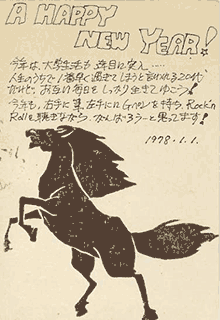 A HAPPY
NEW YEAR!
今年は、大学生活も 5年目に突入……
人生のうちで一番早く過ぎてしまうと言われる20代
だけど、お互い毎日をしっかり生きてゆこう!
今年も、右手に 左手に を持ち、Rock'n
Rollを聴きながら、がんばろうーと思ってます!
1978.1.1.